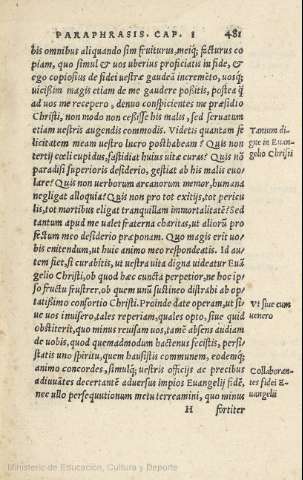 PARAPHRASIS. CAP. I 481
bis omnibus aliquando sim fruiturus, meiq; fecturus co
piam, quo simul & uos uberius proficiatis in fide, &
ego copiosius de fidei uestræ gaudeã incremẽto, uosq;
uicissim magis etiam de me gaudere possitis, postea q̃
ad uos me recepero, denuo conspicientes me præsidio
Christi, non modo non cessisse his malis, sed seruatum
etiam uestris augendis commodis. Videtis quantam fe
licitatem meam uestro lucro posthabeam? Quis non
tertij cœli cupidus, fastidiat huius uitæ curas? Quis nõ
paradisi superioris desiderio, gestiat ab his malis euo
lare? Quis non uerborum arcanorum memor, humana
negligat alloquia? Quis non pro tot exitijs, tot pericu
lis, tot mortibus eligat tranquillam immortalitatẽ? Sed
tantum apud me ualet fraterna charitas, ut aliorũ pro
fectum meo desiderio præponam. Quo magis erit uo
bis enitendum, ut huic animo meo respondeatis. Id au
tem fiet, si curabitis, ut uestra uita digna uideatur Euã
gelio Christi, ob quod hæc cuncta perpetior, ne hoc ip
so fructu frustrer, ob quem unũ sustineo distrahi ab op
tatissimo consortio Christi. Proinde date operam, ut si
ue uos inuisero, tales reperiam, quales opto, siue quid
obstiterit, quo minus reuisam uos, tamẽ absens audiam
de uobis, quod quemadmodum hactenus fecistis, persi
statis uno spiritu, quem hausistis communem, eodemq;
animo concordes, simulq; uestris officijs ac precibus
adiuuãtes decertantẽ aduersus impios Euangelij fidẽ,
nec ullo persequutionum metu terreamini, quo minus
H fortiter
Tantum di-
gne in Euan-
gelio Christi
Vt siue cum
uenero
Collaboran-
tes fidei E-
uangelij
Ministerio de Educación, Cultura y Deporte